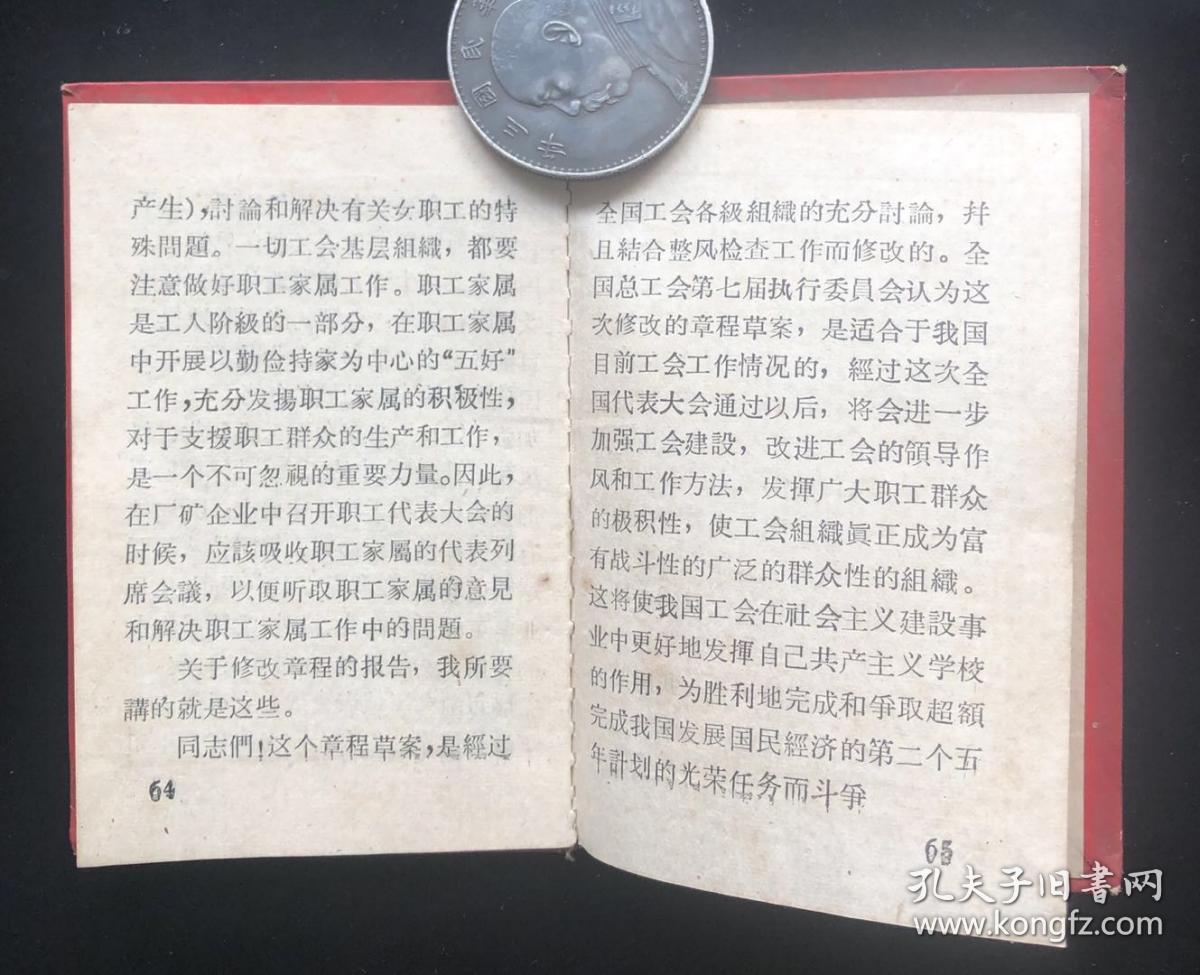 華民國三年
产生)，討論和解决有关女职工的特
殊問題。一切工会基层組織，都要
注意做好职工家属工作。职工家属
是工人阶級的一部分，在职工家属
中开展以勤俭持家为中心的“五好”
工作，充分发揚职工家属的积极性，
对于支援职工群众的生产和工作，
是一个不可忽視的重要力量。因此，
在厂矿企业中召开职工代表大会的
时候，应該吸收职工家屬的代表列
席会議，以便听取职工家属的意見
和解决职工家属工作中的問題。
关于修改章程的报告，我所要
講的就是这些。
同志們！这个章程草案，是經过
64
全国工会各級組織的充分討論，幷
且結合整风检查工作而修改的。全
国总工会第七届执行委員会认为这
次修改的章程草案，是适合于我国
目前工会工作情况的，經过这次全
国代表大会通过以后，将会进一步
加强工会建設，改进工会的領导作
风和工作方法，发揮广大职工群众
的极积性，使工会組織眞正成为富
有战斗性的广泛的群众性的組織。
这将使我国工会在社会主义建設事
业中更好地发揮自己共产主义学校
的作用，为胜利地完成和爭取超額
完成我国发展国民經济的第二个五
年計划的光荣任务而斗爭
65
孔夫子旧書网
www.kongfz.com